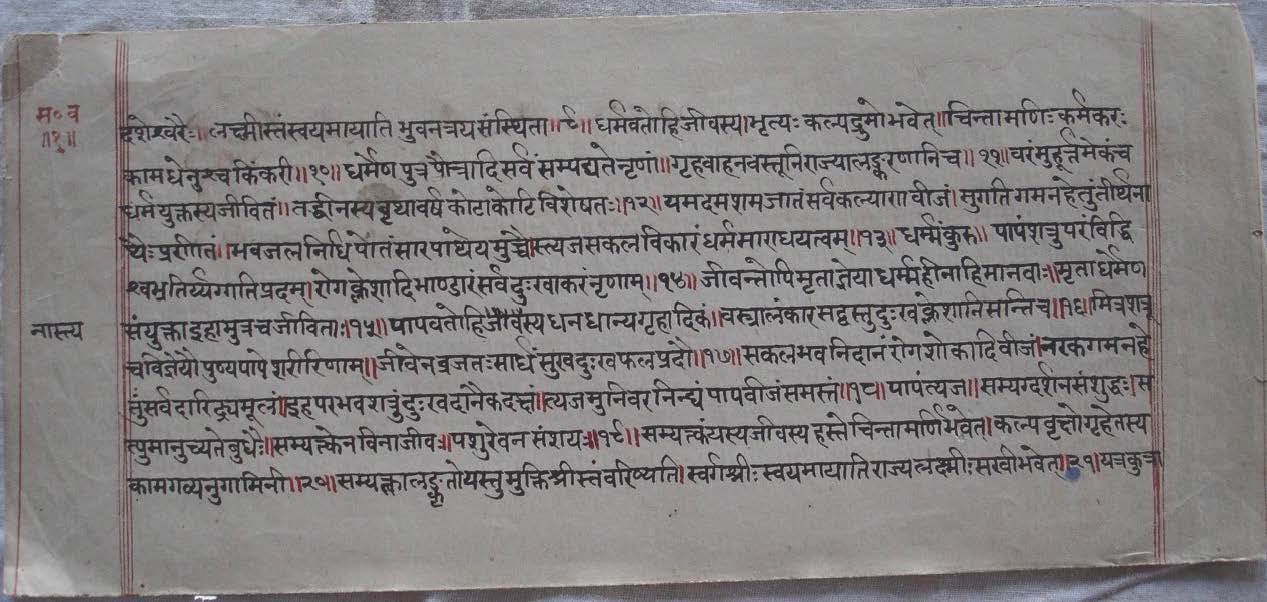 म॰व
॥१॥
दशेश्वरैः॥ लक्ष्मीस्तंस्वयमायाति भुवनत्रयसंस्थिता॥९॥ धर्मवतोहिजीवस्याभृत्यः कल्पद्रुमोभवेत्॥चिन्तामणिः कर्मकरः
कामधेनुश्चकिंकरी॥१०॥ धर्मेण पुत्रपौत्रादिसर्वं सम्पद्यतेनृणां॥गृहवाहनवस्तूनिराज्यालङ्करणानिच॥११॥वरंमुहूर्त्तमेकंच
धर्मयुक्तस्यजीवितं॥तद्धीनस्यवृथावर्षकोटाकोटिविशेषतः॥१२॥यमदमशमजातंसर्वकल्याणवीजं।सुगतिगमनहेतुंतीर्थना
थैःप्रणीतं॥भवजलनिधिपोतंसारपाथेयमुच्चैस्त्यजसकलविकारंधर्ममाराधयत्वम्॥१३॥धर्म्मंकुरु॥ पापंशत्रुपरंविद्धि
श्वभ्रतिर्य्यग्गतिप्रदम्।रोगक्लेशादिभाण्डारंसर्वदुःखाकरंनृणाम्॥१४॥जीवन्तोपिमृताज्ञेयाधर्म्महीनाहिमानवाः॥मृताधर्मेण
नास्त्य
संयुक्ताइहामुत्रचजीविताः॥१५॥पापवतोहिजीवस्यधनधान्यगृहादिकं॥वस्त्रालंकारसद्वस्तुदुःखक्लेशानिसन्तिच॥१६॥मित्रशत्रू
चविज्ञेयौपुण्यपापेशरीरिणाम्॥जीवेनव्रजतःसार्धंसुखदुःखफलप्रदौ॥१७॥सकलभवनिदानंरोगशोकादिवीजं।नरकगमनहे
तुंसर्वदारिद्र्यमूलं॥इहपरभवशत्रुंदुःखदानैकदक्षं॥त्यजमुनिवरनिन्द्यंपापवीजंसमस्तं॥१८॥पापंत्यज॥सम्यग्दर्शनसंशुद्धः।स
त्पुमानुच्यतेबुधैः॥सम्यक्त्केनविनाजीवः॥पशुरेवनसंशयः॥१९॥सम्यक्त्वंयस्यजीवस्यहस्तेचिन्तामणिर्भवेत्।कल्पवृक्षोगृहेतस्य
कामगव्यनुगामिनी॥२०॥सम्यक्त्वालङ्कृतोयस्तुमुक्तिश्रीस्तंवरिष्यति।स्वर्गश्रीःस्वयमायातिराज्यलक्ष्मीःसखीभवेत्॥२१॥यत्रकुत्रा